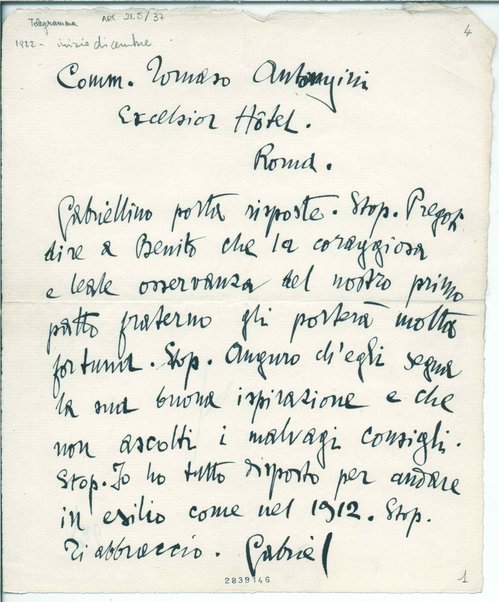 Telegramma ART. 21.5/37
4
1922 - inizio dicembre
Comm. Tomaso Antongini
Excelsior Hôtel.
Roma.
Gabriellino porta risposte. Stop. Pregoti
dire a Benito che la coraggiosa
e leale osservanza del nostro primo
patto fraterno gli porterà molta
fortuna. Stop. Auguro ch'egli segua
la sua buona ispirazione e che
non ascolti i malvagi consigli.
Stop. Io ho tutto disposto per andare
in esilio come nel 1912. Stop.
Ti abbraccio. Gabriel
2839146
1